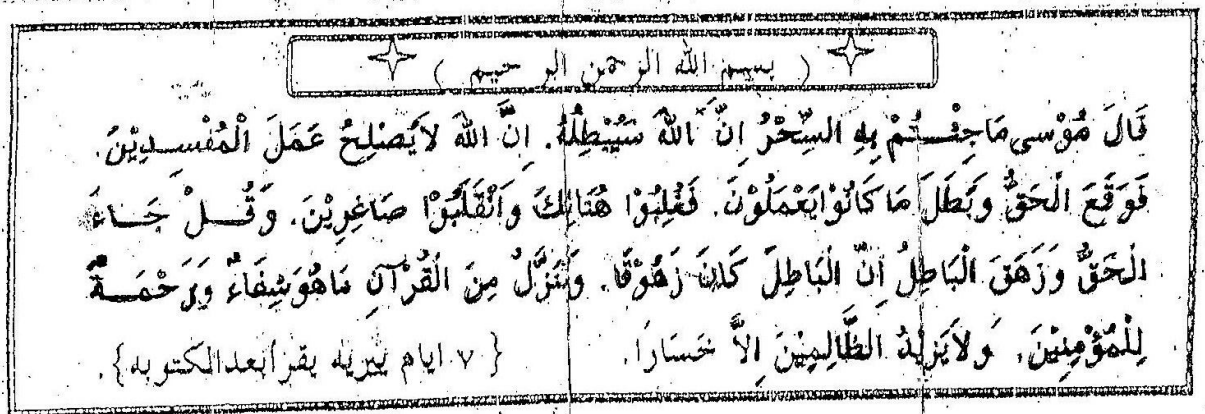 ( بسم الله الرحمن الرحيم )
قَالَ مُوْسى مَاجِئْتُمْ بِهِ السِّحْرُ اِنَّ اللهَ سَيُبْطِلُهُ. اِنَّ اللهَ لاَيُصْلِحُ عَمَلَ الْمُفْسِدِيْنَ.
فَوَقَعَ الْحَقُّ وَبَطَلَ مَاكَانُوْايَعْمَلُوْنَ. فَغُلِبُوْا هُنَالِكَ وَانْقَلَبُوْا صَاغِرِيْنَ. وَقُلْ جَاءَ
الْحَقُّ وَزَهَقَ الْبَاطِلُ اِنَّ الْبَاطِلَ كَانَ زَهُوْقًا. وَنُنَزِّلُ مِنَ الْقُرْآنِ مَاهُوَشِفَاءٌ وَرَحْمَةٌ
لِلْمُؤْمِنِيْنَ. وَلاَيَزِيْدُ الظَّالِمِيْنَ اِلاَّ خَسَارًا. { ٧ ايام يقرأبعدالكتوبه}.